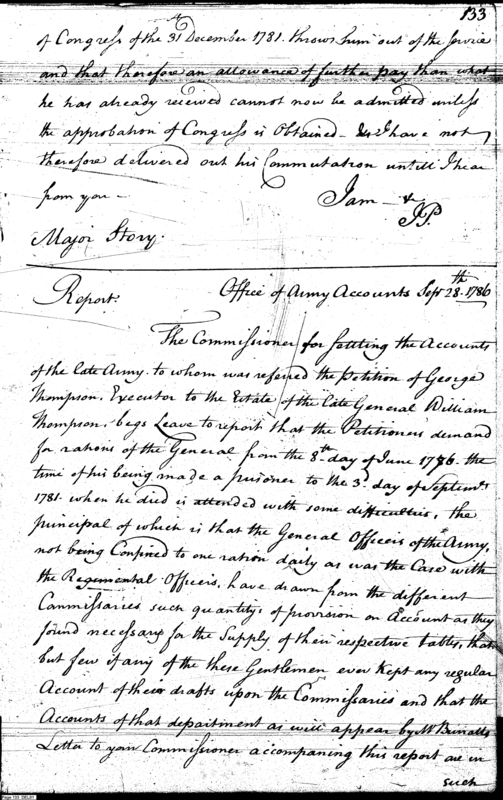 133
of Congress of the 31 December 1781. throws him out of the service
and that therefore an allowance of further pay than what
he has already received cannot now be admitted unless
the approbation of Congress is Obtained - I have not
therefore delivered out his Commutation untill I hear
from you -
I am - &
J P.
Major Story.
Report.
Office of Army Accounts Sept 28th 1786
The Commissioner for settling the Accounts
of the late Army to whom was referred the Petition of George
Thompson, Executor to the Estate of the late General William
Thompson, begs Leave to report that the Petitioners demand
for rations of the General from the 8th day of June 1776. the
time of his being made a prisoner to the 3d day of Septemr
1781. when he died is attended with some difficulties, the
principal of which is that the General Officers of the Army,
not being Confined to one ration daily as was the Case with
the Regimental Officers, have drawn from the different
Commissaries such quantitys of provision on Account as they
found necessary for the Supply of their respective tables, that
but few if any of the these Gentlemen ever Kept any regular
Account of their drafts upon the Commissaries and that the
Accounts of that department as will appear by Mr
Letter to your Commissioner accompaning this report are in
such